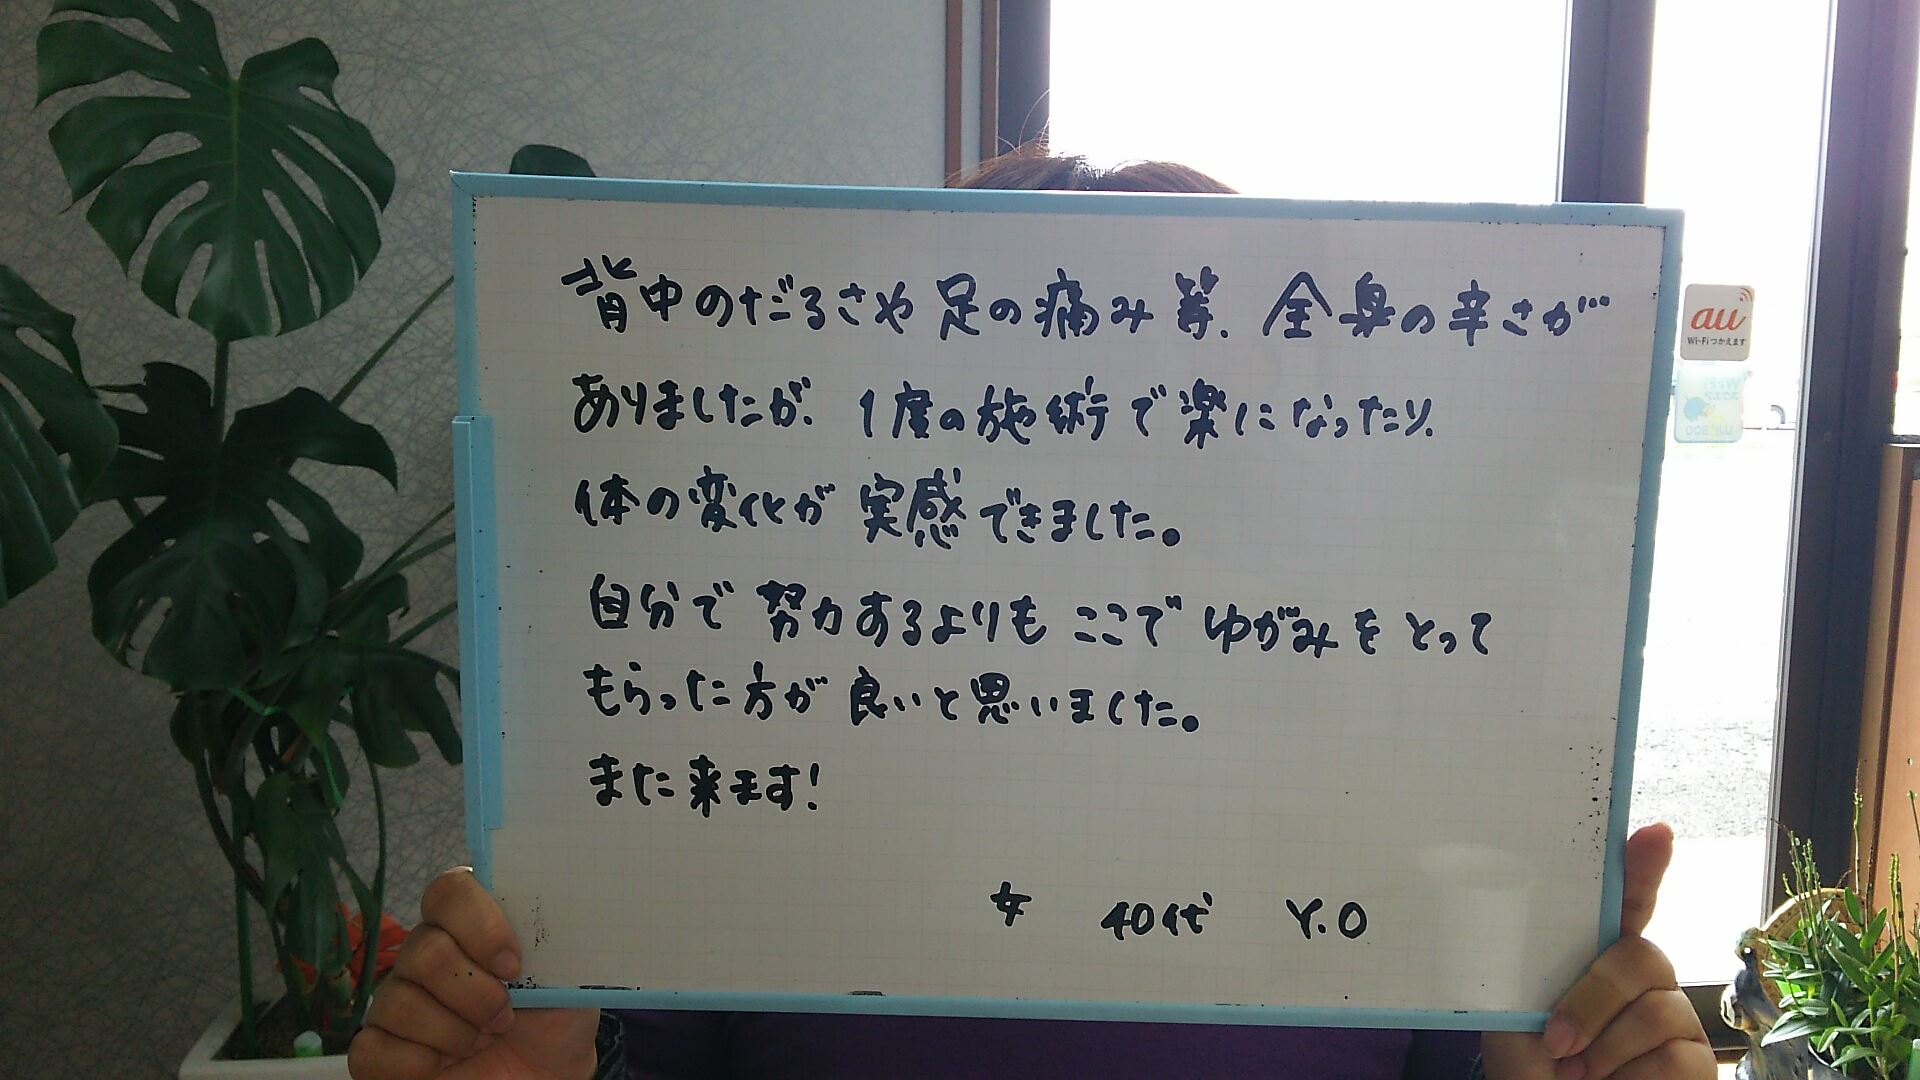 背中のだるさや足の痛み等、全身の辛さが
ありましたが、1度の施術で楽になったり、
体の変化が実感できました。
自分で努力するよりもここでゆがみをとって
もらった方が良いと思いました。
また来ます!
女 40代 Y.O
au
Wi-Fiつかえます